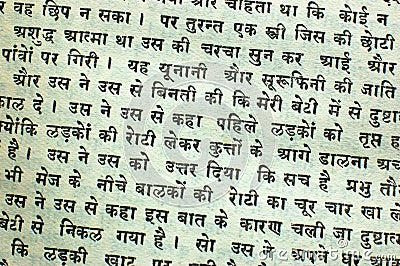 और चाहता था कि कोई न
र वह छिप न सका । पर तुरन्त एक स्त्री जिस की छोटी
अशुद्ध आत्मा था उस की चरचा सुन कर आई और
पांवों पर गिरी । यह यूनानी और सूरूफिनी की जाति
और उस ने उस से बिनती की कि मेरी बेटी में से दुष्टा
काल दे । उस ने उस से कहा पहिले लड़कों को तृप्त ह
योंकि लड़कों की रोटी लेकर कुत्तों के आगे डालना अच
है । उस ने उस को उत्तर दिया कि सच है प्रभु तौ
भी मेज के नीचे बालकों की रोटी का चूर चार खा ले
उस ने उस से कहा इस बात के कारण चली जा दुष्टात्म
बेटी से निकल गया है । सो उस ने अपने घर
कि लड़की खाट पर